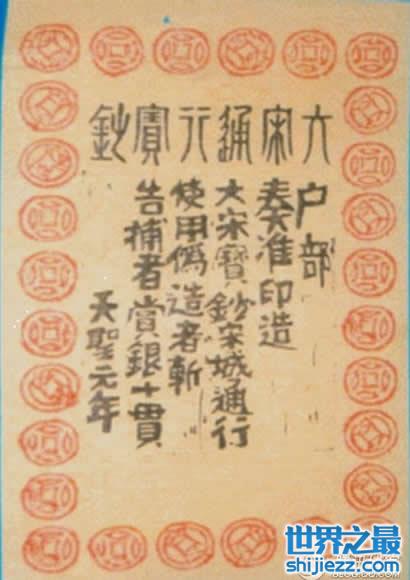 大宋通行寶鈔
户部
奏准印造
大宋寶鈔宋城通行
使用偽造者斬
告捕者賞銀十貫
天聖元年
世界之最
shijiezz.com